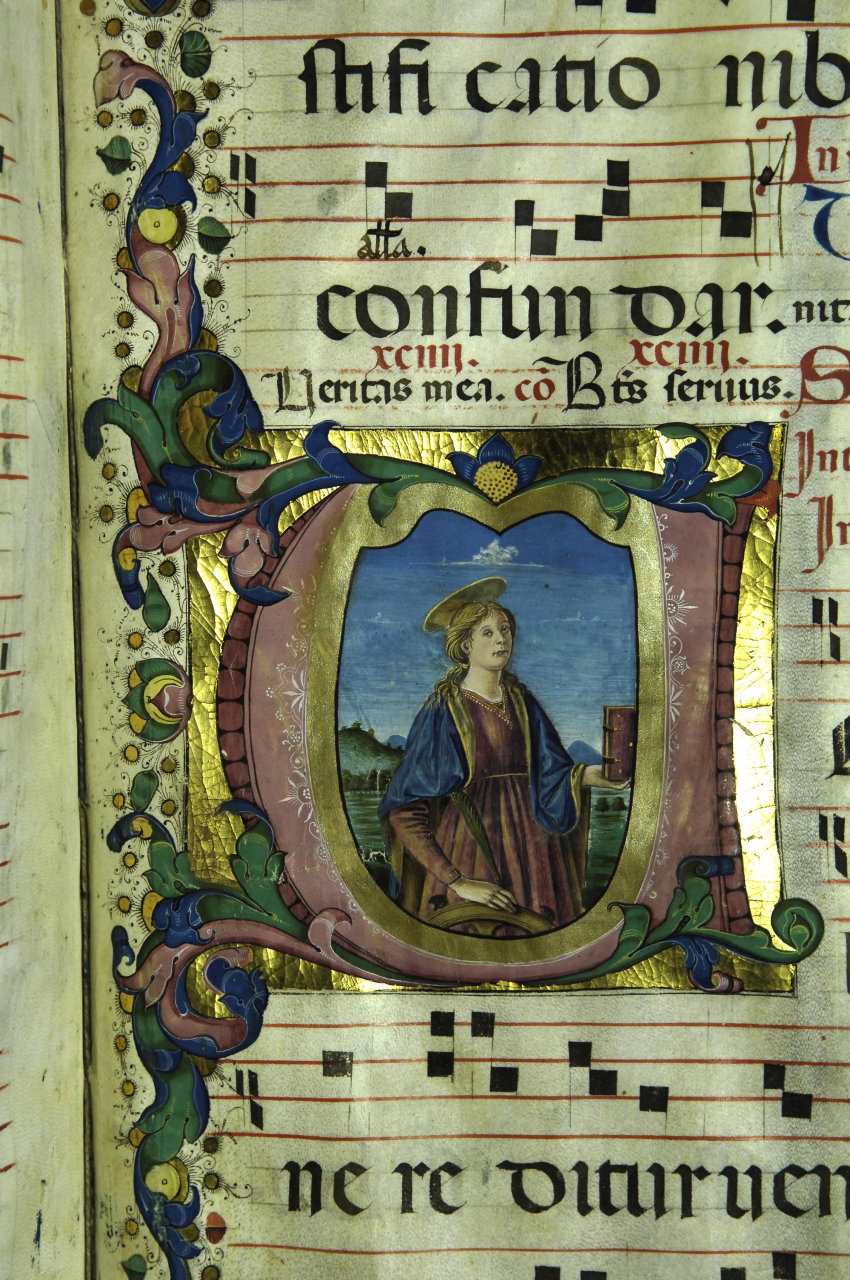 stifi catio nib
In
alla.
confun dar. nit
xciiii. xciiii.
Veritas mea. cō Bt̄s seruus. S
Int
In
ne re dituruen